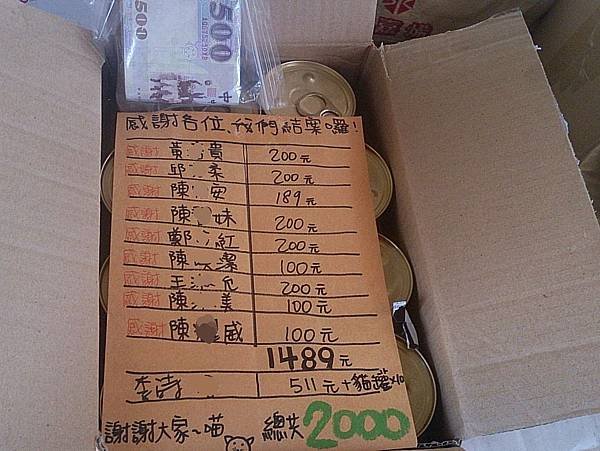 500
500
中
感謝各位、我們結業囉!
感謝 黃 貴 200元
感謝 邱 柔 200元
感謝 陳 安 189元
感謝 陳 妹 200元
感謝 鄭 紅 200元
感謝 陳 潔 100元
感謝 王 200元
感謝 陳 美 100元
感謝 陳 威 100元
1489元
李 511元+貓罐x10
謝謝大家~喵 總共2000